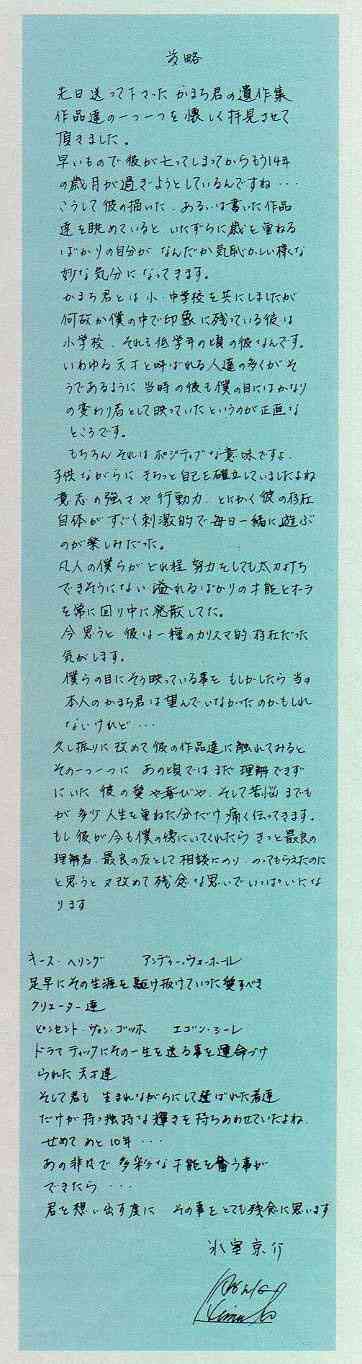 前略
先日送って下さった かまち君の遺作集
作品達の一つ一つを懐しく拝見させて
頂きました。
早いもので彼が亡ってしまってからもう14年
の歳月が過ぎようとしているんですね・・・
こうして彼の描いた、あるいは書いた作品
達を眺めていると いたずらに歳を重ねる
ばかりの自分が なんだか気恥かしい様な
妙な気分になってきます。
かまち君とは小・中学校を共にしましたが
何故か僕の中で印象に残っている彼は
小学校、それも低学年の頃の彼なんです。
いわゆる天才と呼ばれる人達の多くがそ
うであるように 当時の彼も僕の目にはかなり
の変わり者として映っていたというのが正直な
ところです。
もちろんそれはポジティブな意味ですよ。
子供ながらに きちっと自己を確立していましたよね
意志の強さや行動力、とにかく彼の存在
自体がすごく刺激的で毎日一緒に遊ぶ
のが楽しみだった。
凡人の僕らがどれ程努力をしても太刀打ち
できそうにない 溢れるばかりの才能とオーラ
を常に回り中に発散してた。
今思うと 彼は一種のカリスマ的存在だった
気がします。
僕らの目にそう映っている事を もしかしたら 当の
本人のかまち君は望んでいなかったのかもしれ
ないけれど・・・
久し振りに改めて彼の作品達に触れてみると
その一つ一つに あの頃ではまだ理解できず
にいた 彼の愛や喜びや、そして苦悩までも
が多少人生を重ねた分だけ痛く伝ってきます。
もし彼が今も僕の傍にいてくれたら きっと最良の
理解者、最良の友として相談にのり、のってもらえたのに
と思うと又改めて残念な思いでいっぱいにな
ります
キース・ヘリング アンディー・ウォーホール
足早にその生涯を駆け抜けていった愛すべき
クリエーター達
ビンセント・ヴァン・ゴッホ エゴン・シーレ
ドラマティックにその一生を送る事を運命づけ
られた天才達
そして君も 生まれながらにして選ばれた者達
だけが持つ独特な輝きを持ちあわせていたよね
せめて あと10年・・・
あの非凡で多彩な才能を奮う事が
できたら・・・
君を想い出す度に その事をとても残念に思います
氷室京介